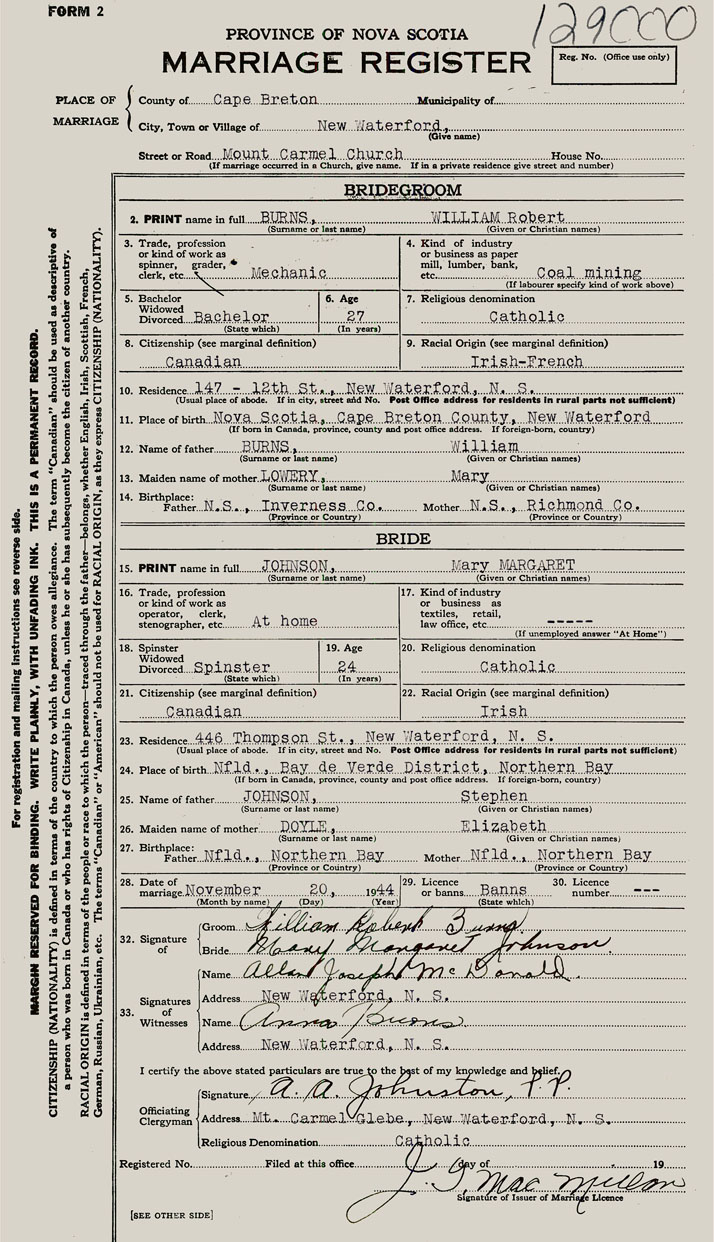 FORM 2
129000
PROVINCE OF NOVA SCOTIA
MARRIAGE REGISTER
Reg. No. (Office use only)
PLACE OF MARRIAGE
County of Cape Breton Municipality of
City, Town or Village of New Waterford,
(Give name)
Street or Road Mount Carmel Church House No.
(If marriage occurred in a Church, give name. If in a private residence give street and number)
For registration and mailing instructions see reverse side.
MARGIN RESERVED FOR BINDING. WRITE PLAINLY, WITH UNFADING INK. THIS IS A PERMANENT RECORD.
CITIZENSHIP (NATIONALITY) is defined in terms of the country to which the person owes allegiance. The term "Canadian" should be used as descriptive of
a person who was born in Canada or who has rights of Citizenship in Canada, unless he or she has subsequently become the citizen of another country.
RACIAL ORIGIN is defined in terms of the people or race to which the person—traced through the father—belongs, whether English, Irish, Scottish, French,
German, Russian, Ukrainian, etc. The terms "Canadian" or "American" should not be used for RACIAL ORIGIN, as they express CITIZENSHIP (NATIONALITY).
BRIDEGROOM
2. PRINT name in full BURNS, WILLIAM Robert
(Surname or last name) (Given or Christian names)
3. Trade, profession
or kind of work as
spinner, grader,
clerk, etc. Mechanic
4. Kind of industry
or business as paper
mill, lumber, bank,
etc. Coal mining
(If labourer specify kind of work above)
5. Bachelor
Widowed
Divorced Bachelor
(State which)
6. Age
27
(In years)
7. Religious denomination
Catholic
8. Citizenship (see marginal definition)
Canadian
9. Racial Origin (see marginal definition)
Irish-French
10. Residence 147 - 12th St., New Waterford, N. S.
(Usual place of abode. If in city, street and No. Post Office address for residents in rural parts not sufficient)
11. Place of birth Nova Scotia, Cape Breton County, New Waterford
(If born in Canada, province, county and post office address. If foreign-born, country)
12. Name of father BURNS, William
(Surname or last name) (Given or Christian names)
13. Maiden name of mother LOWERY, Mary
(Surname or last name) (Given or Christian names)
14. Birthplace:
Father N.S., Inverness Co. Mother N.S., Richmond Co.
(Province or Country) (Province or Country)
BRIDE
15. PRINT name in full JOHNSON, Mary MARGARET
(Surname or last name) (Given or Christian names)
16. Trade, profession
or kind of work as
operator, clerk,
stenographer, etc. At home
17. Kind of industry
or business as
textiles, retail,
law office, etc. -----
(If unemployed answer "At Home")
18. Spinster
Widowed
Divorced Spinster
(State which)
19. Age
24
(In years)
20. Religious denomination
Catholic
21. Citizenship (see marginal definition)
Canadian
22. Racial Origin (see marginal definition)
Irish
23. Residence 446 Thompson St., New Waterford, N. S.
(Usual place of abode. If in city, street and No. Post Office address for residents in rural parts not sufficient)
24. Place of birth Nfld., Bay de Verde District, Northern Bay
(If born in Canada, province, county and post office address. If foreign-born, country)
25. Name of father JOHNSON, Stephen
(Surname or last name) (Given or Christian names)
26. Maiden name of mother DOYLE, Elizabeth
(Surname or last name) (Given or Christian names)
27. Birthplace:
Father Nfld., Northern Bay Mother Nfld., Northern Bay
(Province or Country) (Province or Country)
28. Date of
marriage November 20, 1944
(Month by name) (Day) (Year)
29. Licence
or banns. Banns
(State which)
30. Licence
number ---
32. Signature of
Groom William Robert Burns.
Bride Mary Margaret Johnson.
33. Signatures of Witnesses
Name Allan Joseph McDonald.
Address New Waterford, N. S.
Name Anna Burns
Address New Waterford, N. S.
I certify the above stated particulars are true to the best of my knowledge and belief.
Officiating Clergyman
Signature A. A. Johnston, P.P.
Address Mt. Carmel Glebe, New Waterford, N. S.
Religious Denomination Catholic
Registered No. Filed at this office day of 19
J. J. MacMillan
Signature of Issuer of Marriage Licence
[SEE OTHER SIDE]